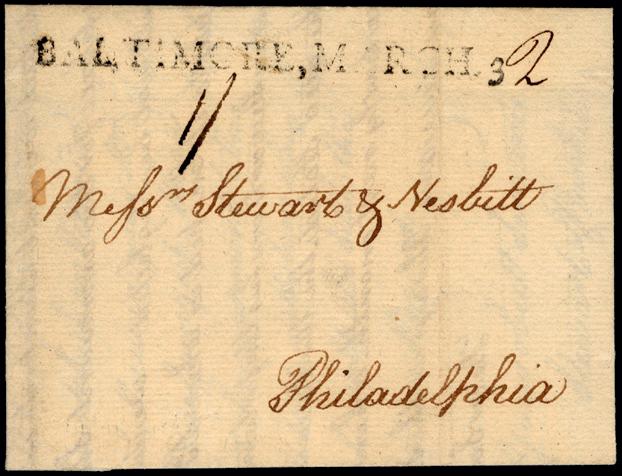 BALTIMORE, MARCH. 32
1/
Messrs Stewart & Nesbitt
Philadelphia